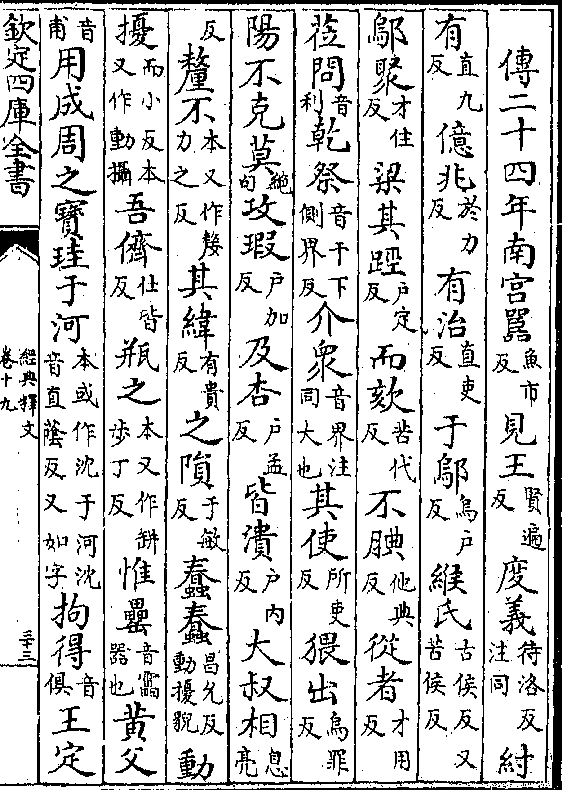 傳二十四年南宮嚚魚巾反見王賢遍反度義待洛反注同紂
有直九反億兆於力反有治直吏反于鄔烏戶反緱氏古侯反又苦侯反
鄔聚才住反梁其踁戶定反而欬苦代反不腆他典反從者才用反
蒞問音利乾祭音干下側界反介衆音界注同大也其使所吏反猥出烏罪反
陽不克莫絶句攻瑕戶加反及杏戶孟反皆潰戶內反大叔相息亮
反釐不本又作嫠力之反其緯有貴反之隕于敏反蠢蠢昌允反動擾貌動
擾而小反本又作動攝吾儕仕皆反瓶之本又作缾步丁反惟罍音雷器也黃父
音甫用成周之寶珪于河本或作沈于河沈音直蔭反又如字拘得音俱王定
欽定四庫全書
經典釋文
卷十九
三十三